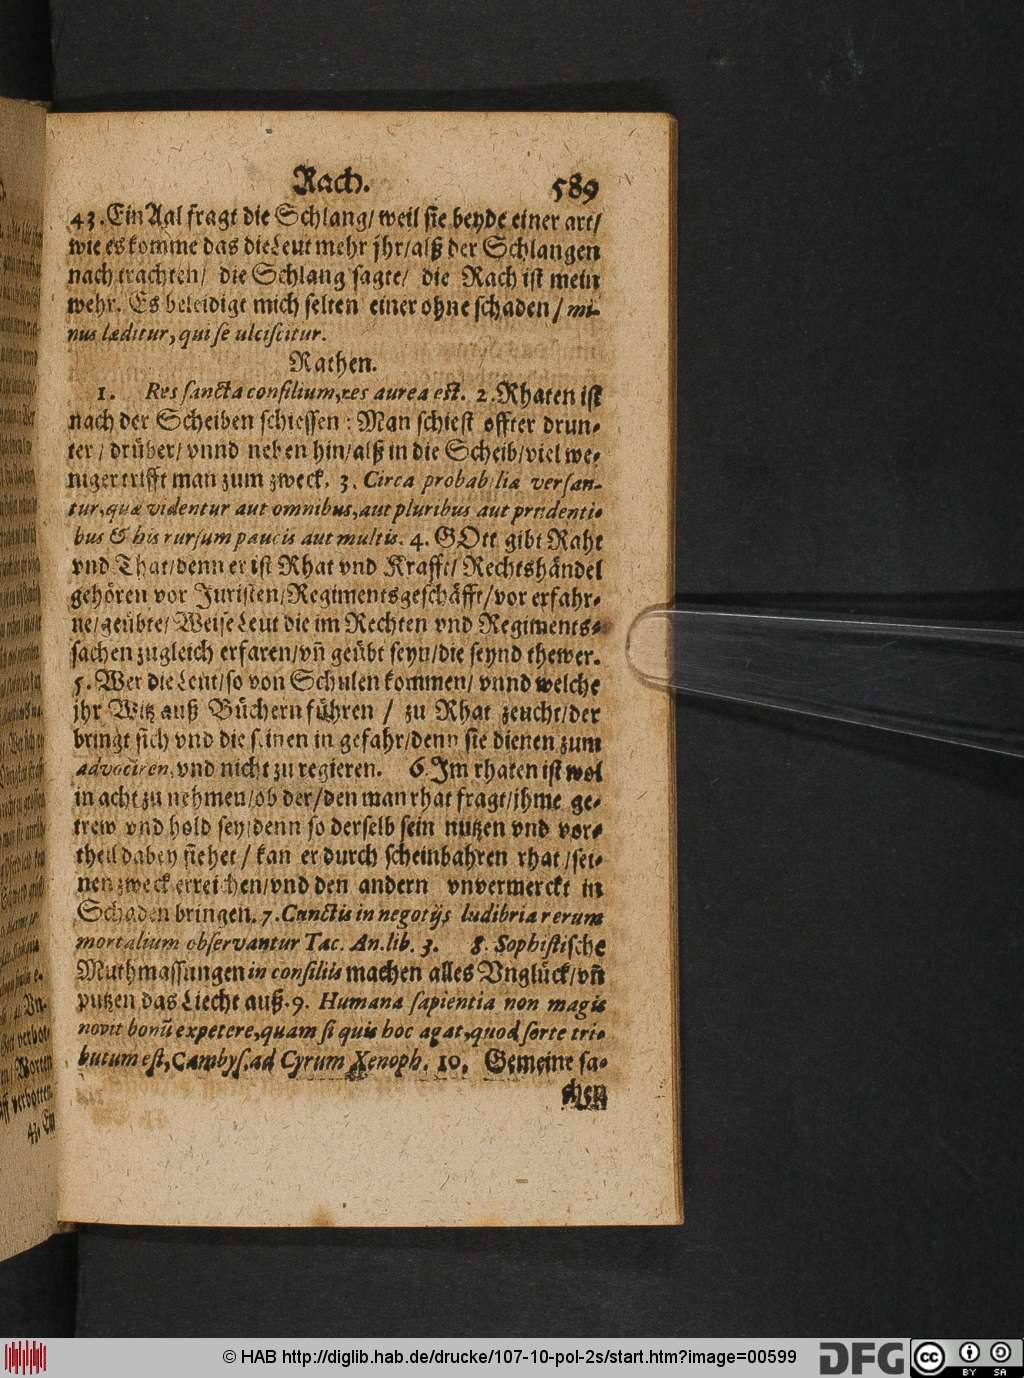 Rach. 589
43. Ein Aal fragt die Schlang/ weil sie beyde einer art/
wie es komme das die Leut mehr jhr/ alß der Schlangen
nach trachten/ die Schlang sagte/ die Rach ist mein
wehr. Es beleidigt mich selten einer ohne schaden/ mi-
nus læditur, qui se ulciscitur.
Rathen.
1. Res sancta consilium, res aurea est. 2. Rhaten ist
nach der Scheiben schiessen: Man schiest offter drun-
ter/ drüber/ vnnd neben hin/ alß in die Scheib/ viel we-
niger trifft man zum zweck. 3. Circa probabilia versan-
tur, quæ videntur aut omnibus, aut pluribus aut prudenti-
bus & his rursum paucis aut multis. 4. GOtt gibt Raht
vnd That/ denn er ist Rhat vnd Krafft/ Rechtshändel
gehören vor Juristen/ Regimentsgeschäfft/ vor erfahr-
ne/ geübte/ Weise Leut die im Rechten vnd Regiments-
sachen zugleich erfaren/ vñ geübt seyn/ die seynd thewer.
5. Wer die Leut/ so von Schulen kommen/ vnnd welche
jhr Witz auß Büchern führen/ zu Rhat zeucht/ der
bringt sich vnd die seinen in gefahr/ denn sie dienen zum
advociren, vnd nicht zu regieren. 6. Jm rhaten ist wol
in acht zu nehmen/ ob der/ den man rhat fragt/ jhme ge-
trew vnd hold sey/ denn so derselb sein nutzen vnd vor-
theil dabey siehet/ kan er durch scheinbahren rhat/ sei-
nen zweck erreichen/ vnd den andern vnvermerckt in
Schaden bringen. 7. Cunctis in negotijs ludibria rerum
mortalium observantur Tac. An. lib. 3. 8. Sophistische
Muthmassungen in consiliis machen alles Vnglück/ vñ
putzen das Liecht auß. 9. Humana sapientia non magis
novit bonū expetere, quam si quis hoc agat, quod sorte tri-
butum est, Cambys. ad Cyrum Xenoph. 10. Gemeine sa-
chen
© HAB http://diglib.hab.de/drucke/107-10-pol-2s/start.htm?image=00599
DFG
cc BY SA